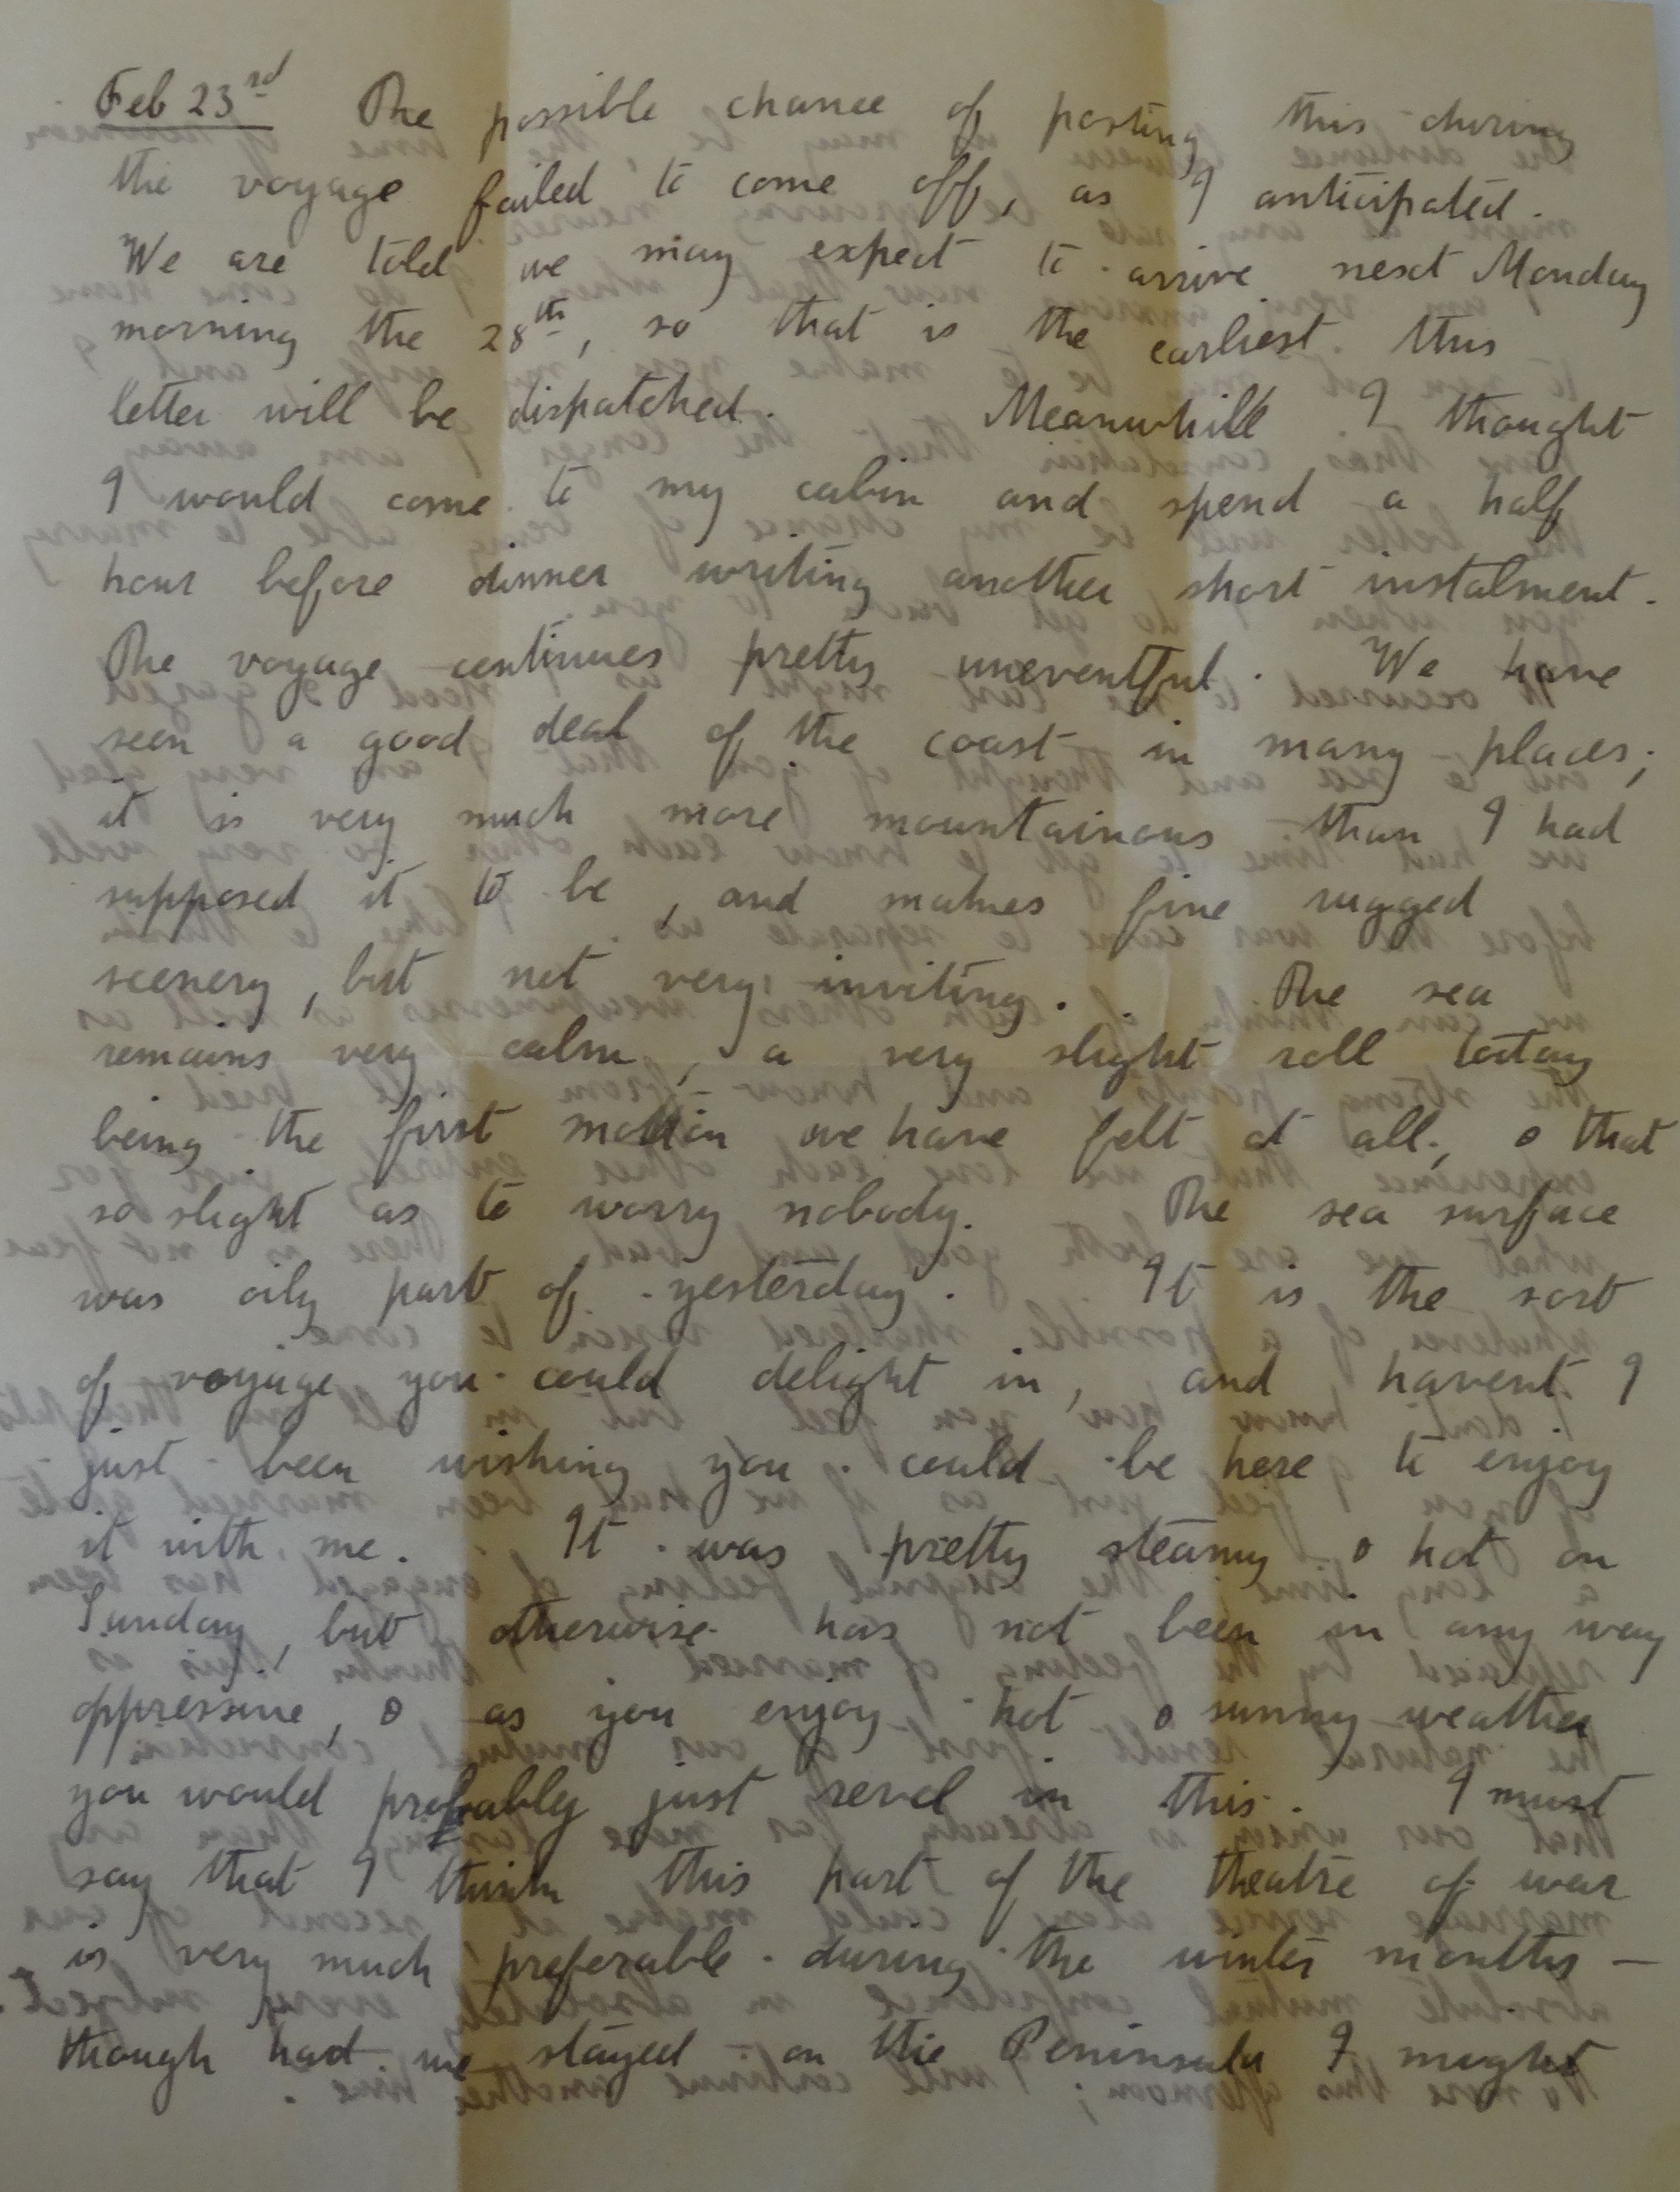 Feb 23rd The possible chance of posting this during
the voyage failed to come off, as I anticipated.
We are told we may expect to arrive next Monday
morning the 28th, so that is the earliest this
letter will be dispatched. Meanwhile I thought
I would come to my cabin and spend a half
hour before dinner writing another short instalment.
The voyage continues pretty uneventful. We have
seen a good deal of the coast in many places;
it is very much more mountainous than I had
supposed it to be, and makes fine rugged
scenery, but not very inviting. The sea
remains very calm, a very slight roll today
being the first motion we have felt at all, & that
so slight as to worry nobody. The sea surface
was oily part of yesterday. It is the sort
of voyage you could delight in, and havent I
just been wishing you could be here to enjoy
it with me. It was pretty steamy & hot on
Sunday, but otherwise has not been in any way
oppressive, & as you enjoy hot & sunny weather
you would probably just revel in this. I must
say that I think this part of the theatre of war
is very much preferable during the winter months —
though had we stayed on the Peninsula I might